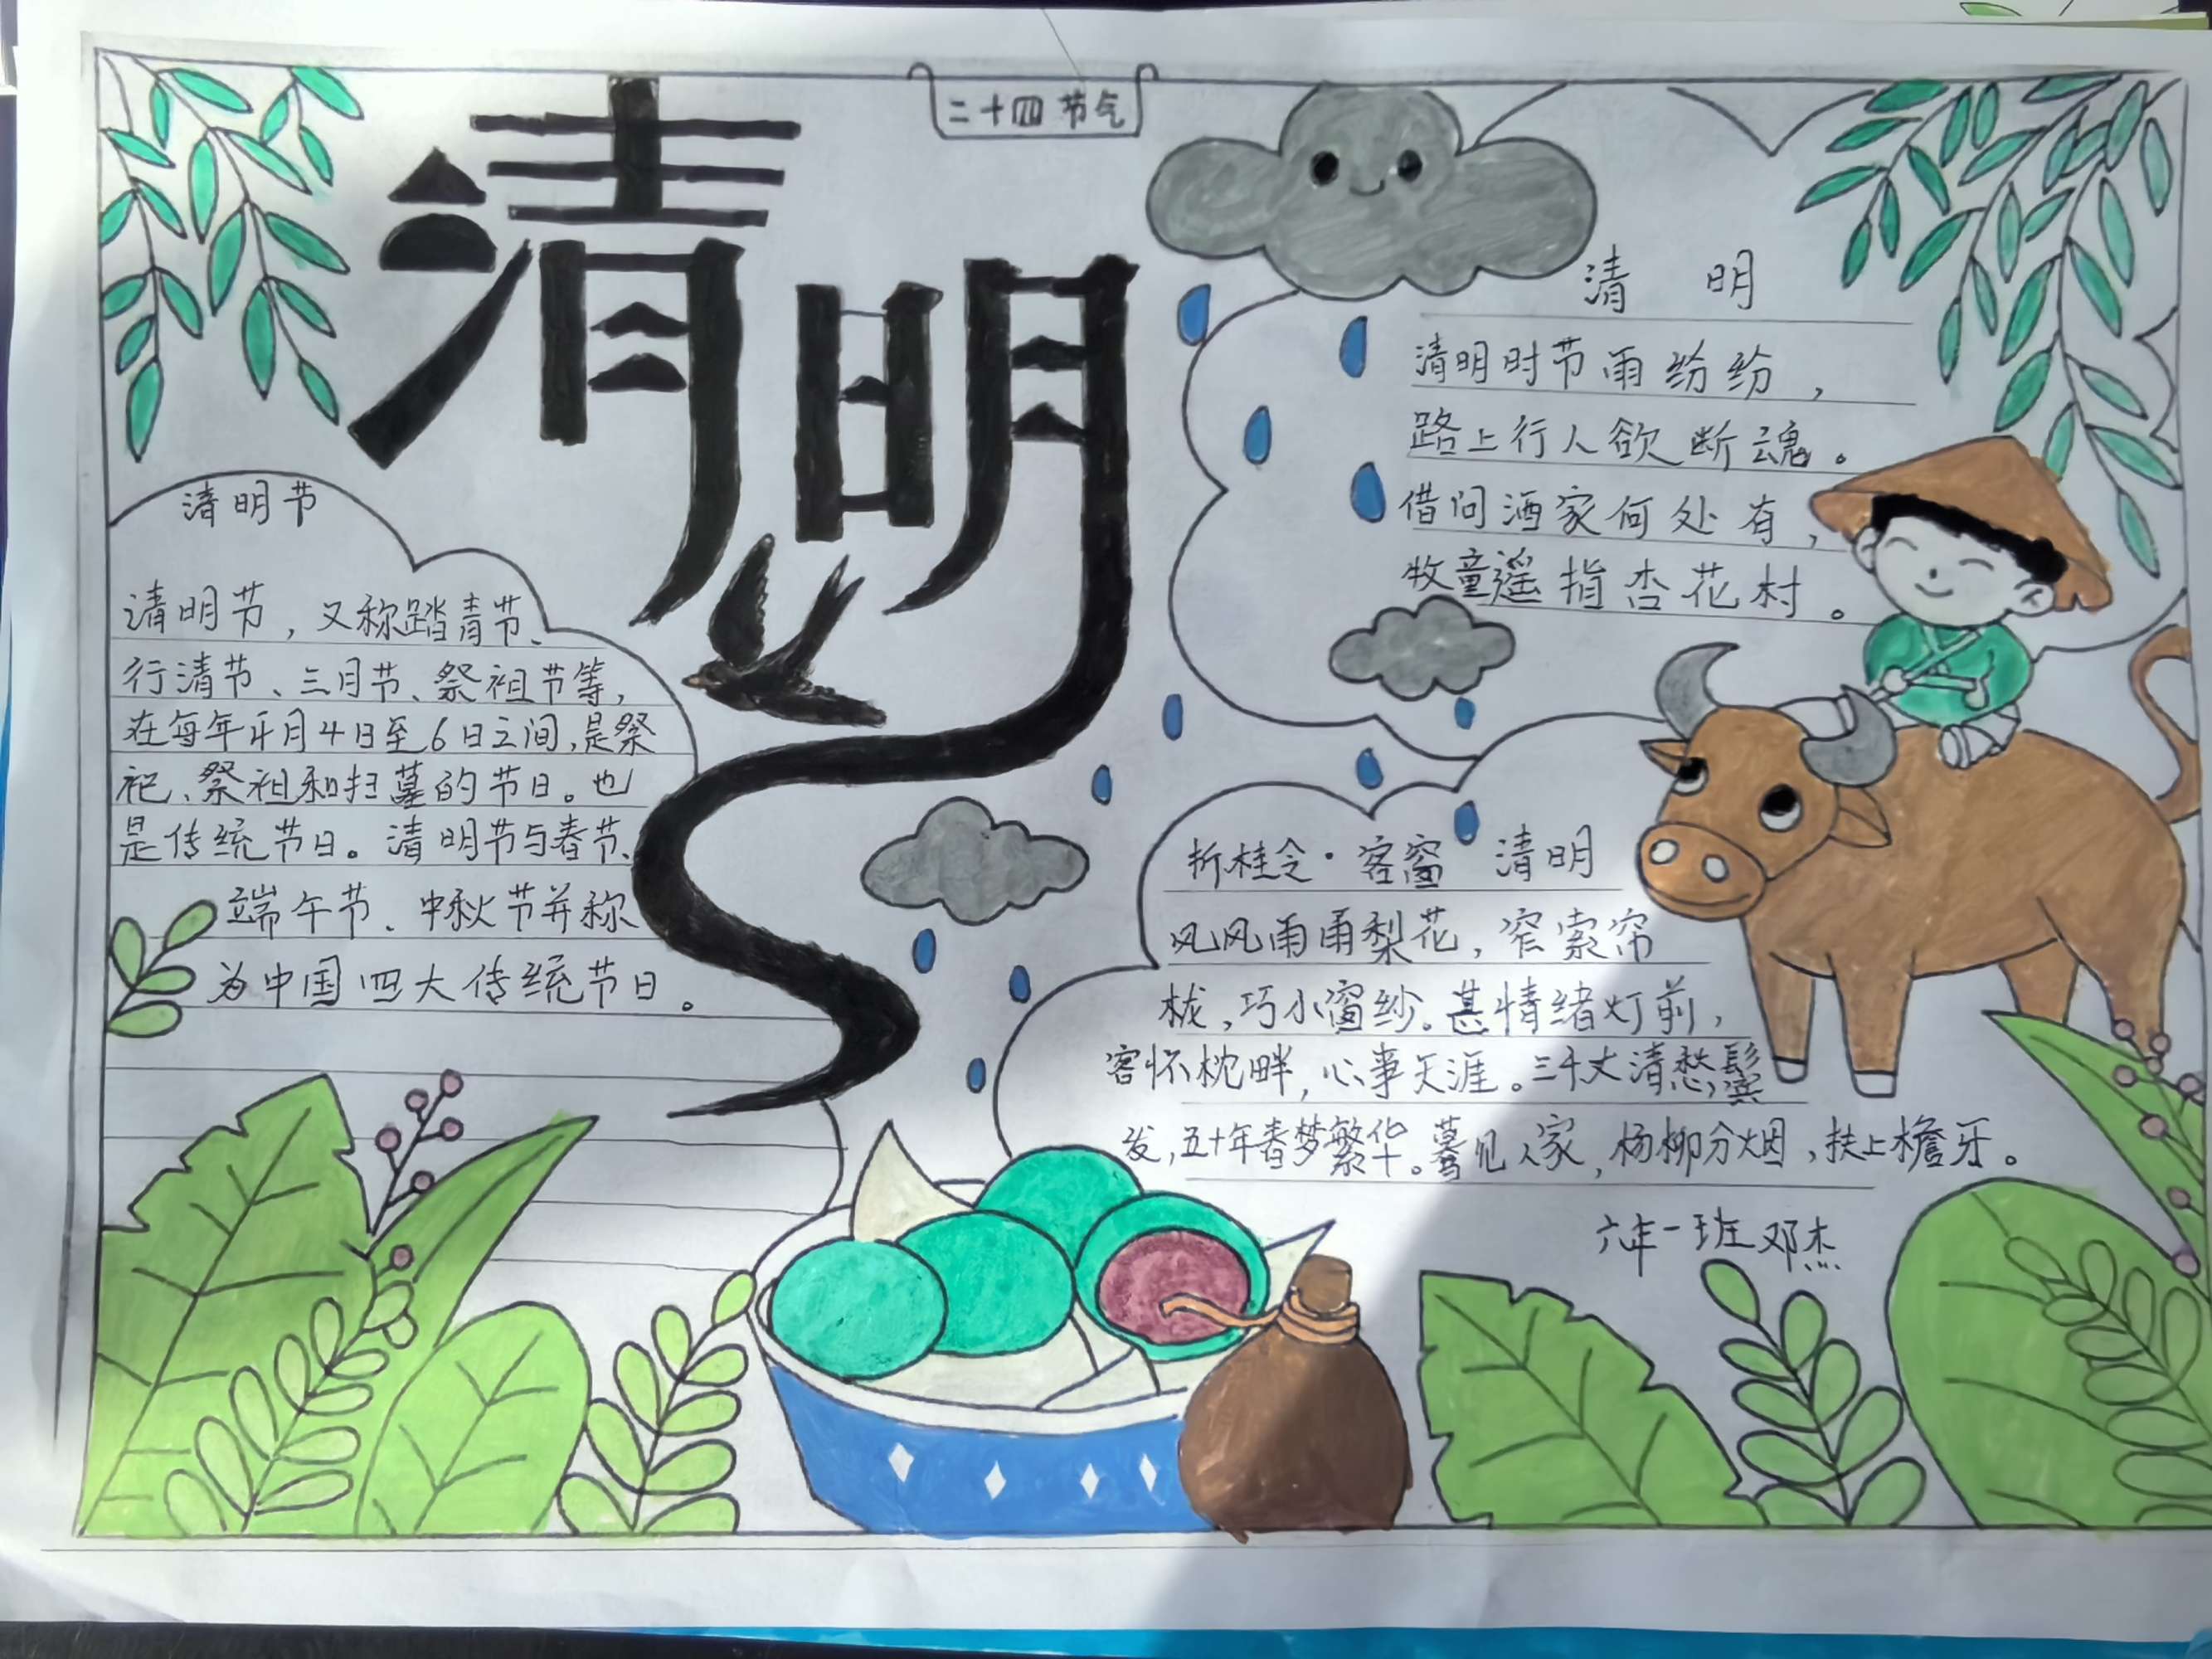 二十四节气
清明
清明节
清明节，又称踏青节、
行清节、三月节、祭祖节等，
在每年4月4日至6日之间，是祭
祀、祭祖和扫墓的节日。也
是传统节日。清明节与春节、
端午节、中秋节并称
为中国四大传统节日。
清 明
清明时节雨纷纷，
路上行人欲断魂。
借问酒家何处有，
牧童遥指杏花村。
折桂令·客窗 清明
风风雨雨梨花，窄索帘
栊，巧小窗纱。甚情绪灯前，
客怀枕畔，心事天涯。三千丈清愁鬓
发，五十年春梦繁华。蓦见人家，杨柳分烟，扶上檐牙。
六年一班 邓杰